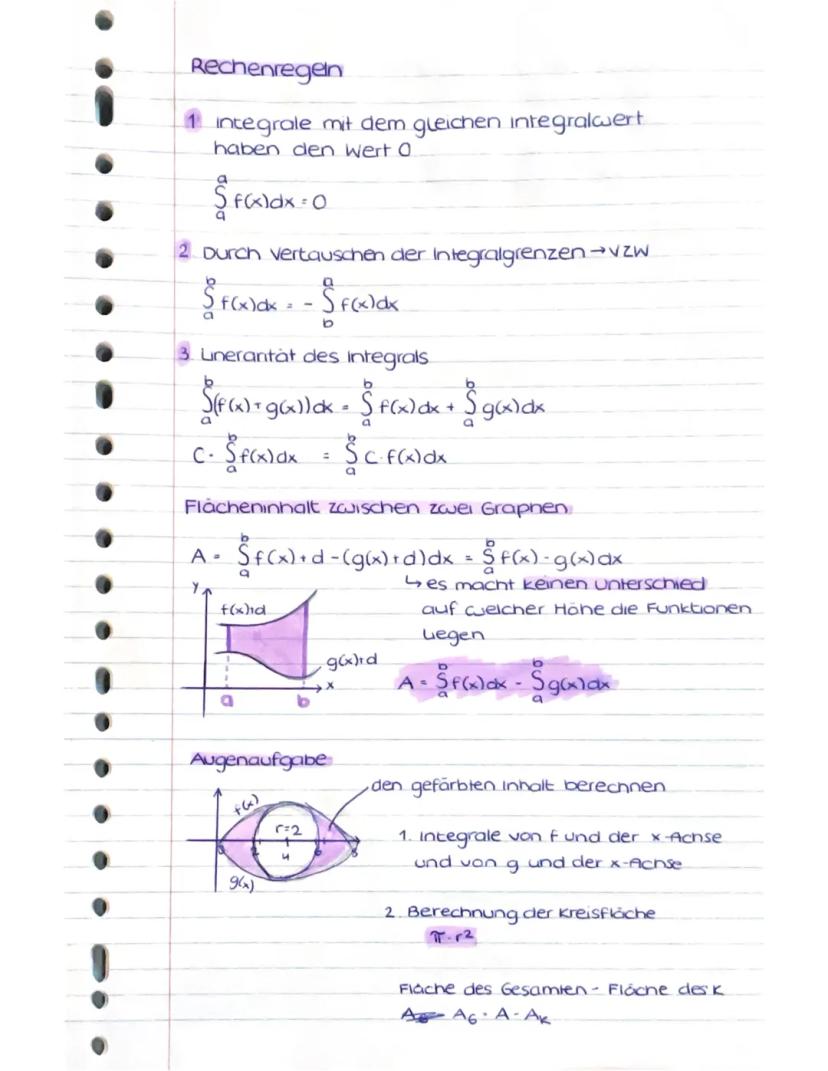 Rechenregeln
1 Integrale mit dem gleichen Integralwert
haben den Wert 0
a
∫ f(x)dx = 0
a
2 Durch Vertauschen der Integralgrenzen → VZW
b a
∫ f(x)dx = - ∫ f(x)dx
a b
3. Linerantät des Integrals
b b b
∫(f(x)+g(x))dx = ∫ f(x)dx + ∫ g(x)dx
a a a
b b
C · ∫ f(x)dx = ∫ C·f(x)dx
a a
Flächeninhalt zwischen zwei Graphen
b b
A = ∫ f(x)+d-(g(x)+d)dx = ∫ f(x)-g(x)dx
a a
↳ es macht keinen Unterschied
auf welcher Höhe die Funktionen
liegen
y
f(x)+d
g(x)+d
x
a b
b b
A = ∫ f(x)dx - ∫ g(x)dx
a a
Augenaufgabe
den gefärbten Inhalt berechnen
f(x)
r=2
2 4 6 8
g(x)
1. Integrale von f und der x-Achse
und von g und der x-Achse
2. Berechnung der Kreisfläche
π·r²
Fläche des Gesamten - Fläche des K
A_G = A - A_K